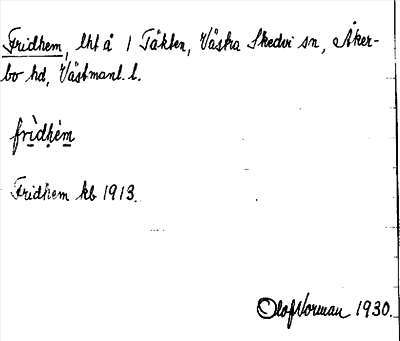 Fridhem, lht å 1 Täkten, Västra Skedvi sn, Åker-
bo hd, Västmanl. l.
frìdhém
Fridhem kb 1913.
Olof Norman 1930.